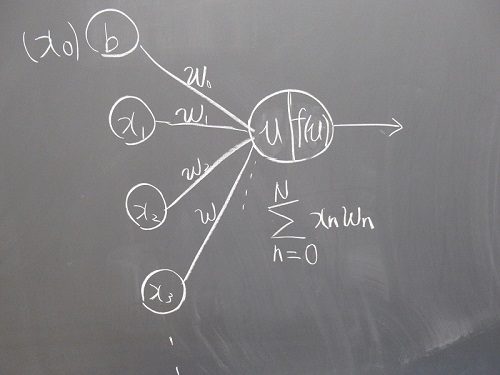 (x₀) b
w₀
x₁ w₁
u f(u)
w₂
x₂
w
N
∑ xₙwₙ
n=0
x₃